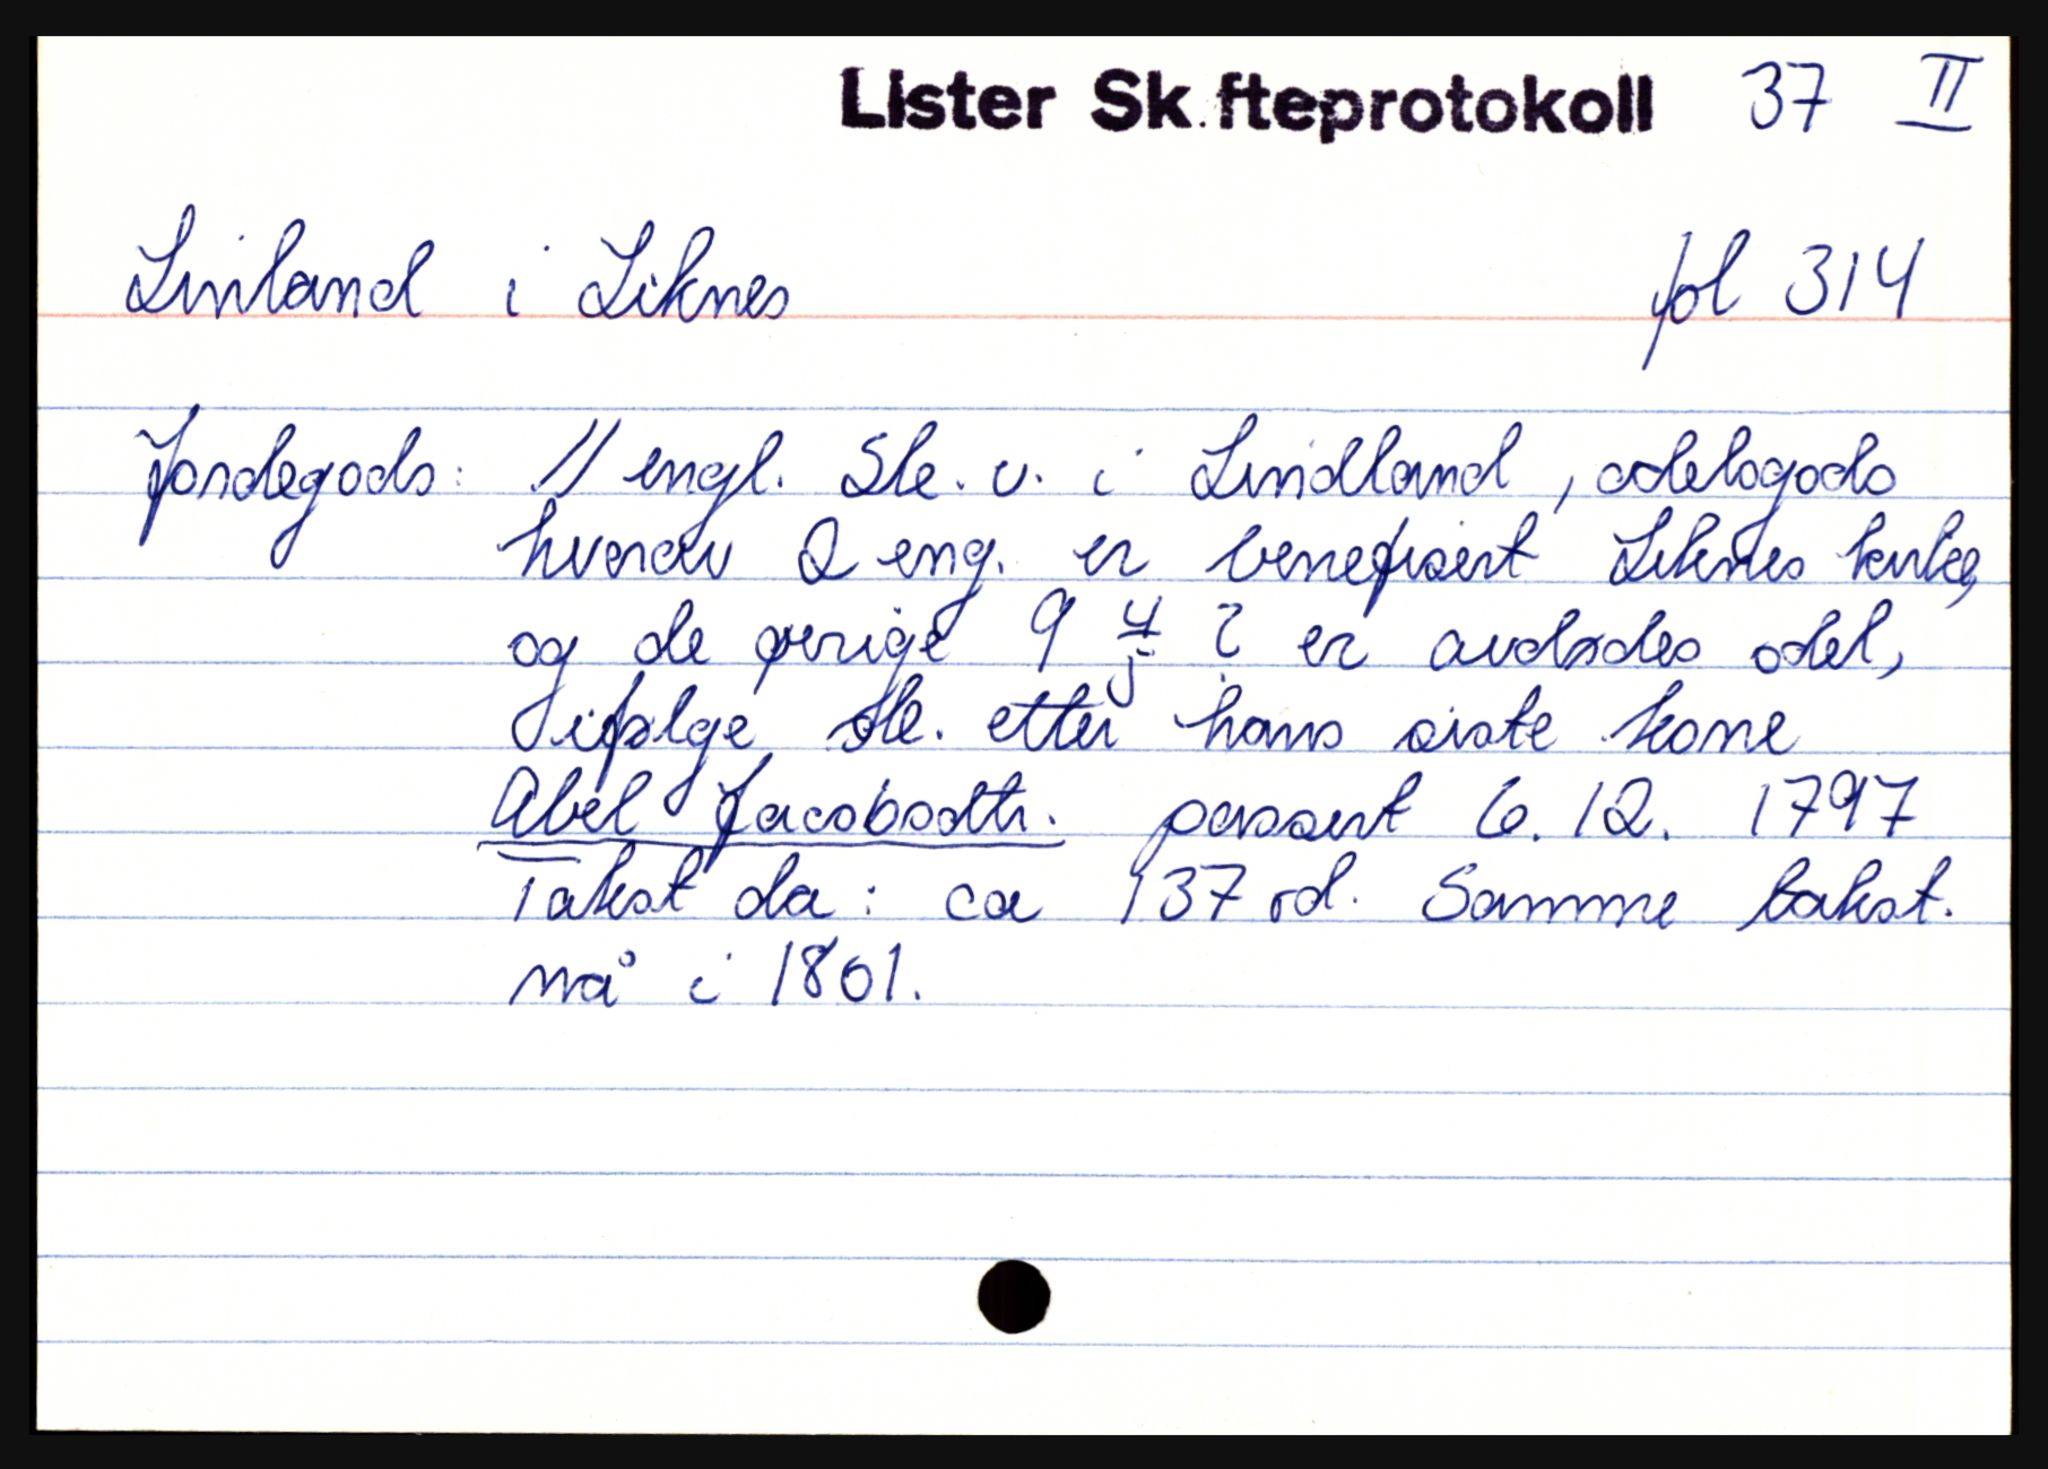 Lister Sk fteprotokoll 37 II
Linland i Liknes fol 314
Jordegods: 11 engl. Sle. v. i Lindland, odelsgods
hvorav 2 eng. er benefisert Liknes kirke,
og de øvrige 9 ? er avdødes odel,
ifølge sle. etter hans siste kone
Abel Jacobsdtr. passert 6. 12. 1797
Takst da: ca 137 rd. Samme takst.
nå i 1801.